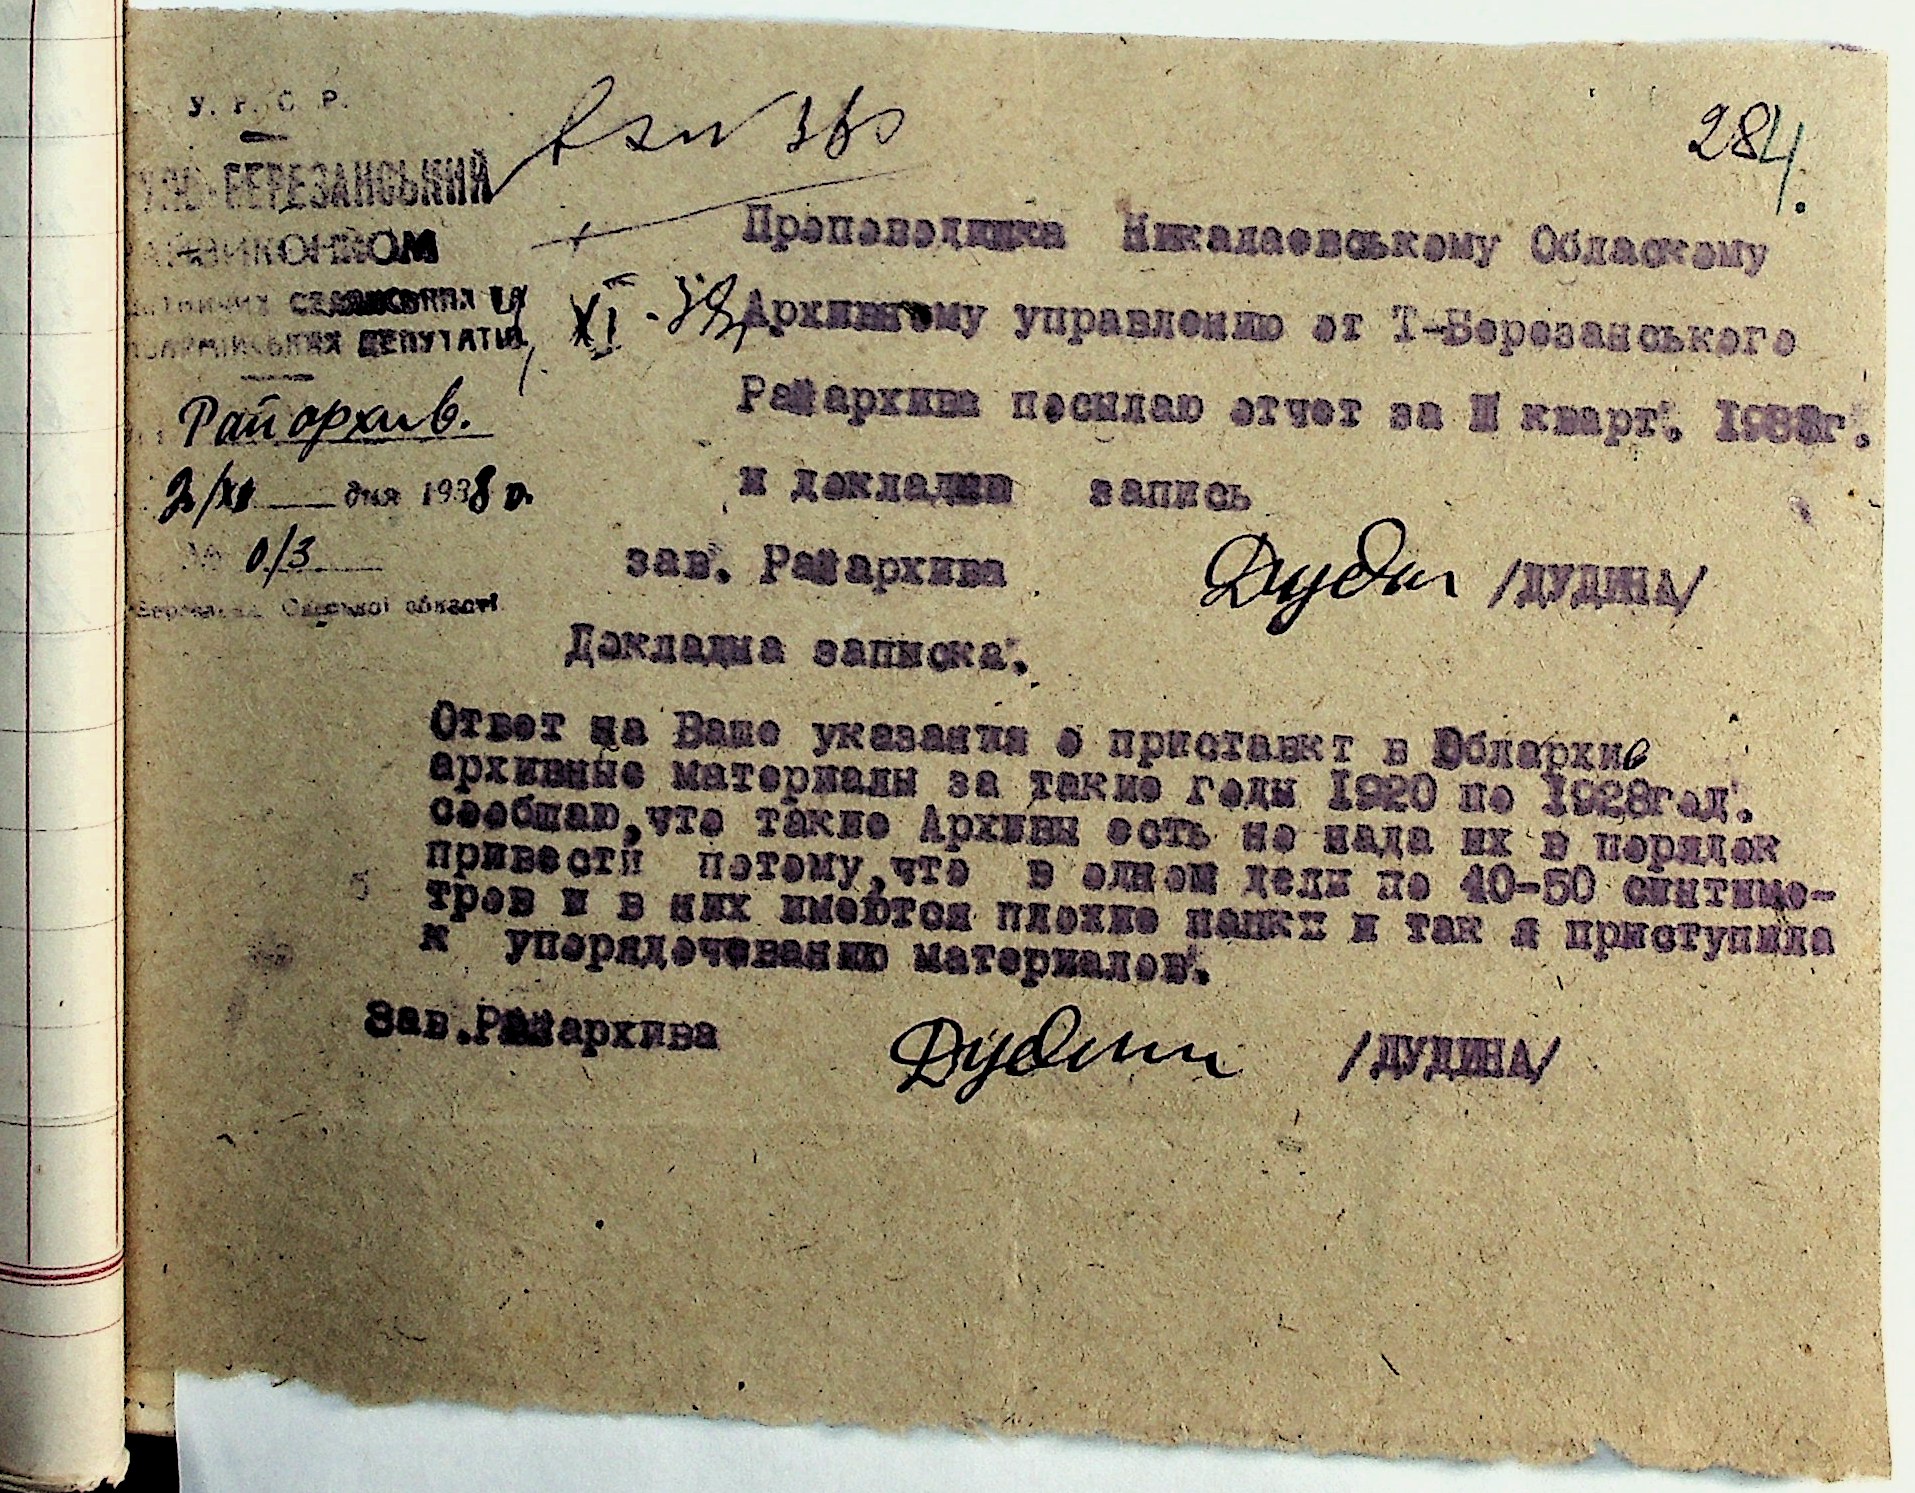 284.
У. Р. С. Р.
БЕРЕЗАНСЬКИЙ
РАЙВИКОНКОМ
СЕЛЯНСЬКИХ ТА
ДЕПУТАТІВ
Райархив.
2/XI дня 1938 р.
№ 0/3
Березанка, Одеської області
XI-38
Препаведилка Никалаевському Обласкому
Архивному управлению от Т-Березанського
Райархива посылаю отчет за III кварт. 1938г.
и докладна запись
зав. Райархива Дудин /ДУДИНА/
Докладна записка.
Ответ на Ваше указания о приставкт в Облархив
архивные материалы за такие годы 1920 по 1928год.
сообщаю,что такие Архивы есть не нада их в порядок
привести потому,что в одном дели по 40-50 сиктиме-
тров и в них имеются плохие папки и так я приступила
к упорядочеванию материалов.
Зав.Райархива Дудин /ДУДИНА/